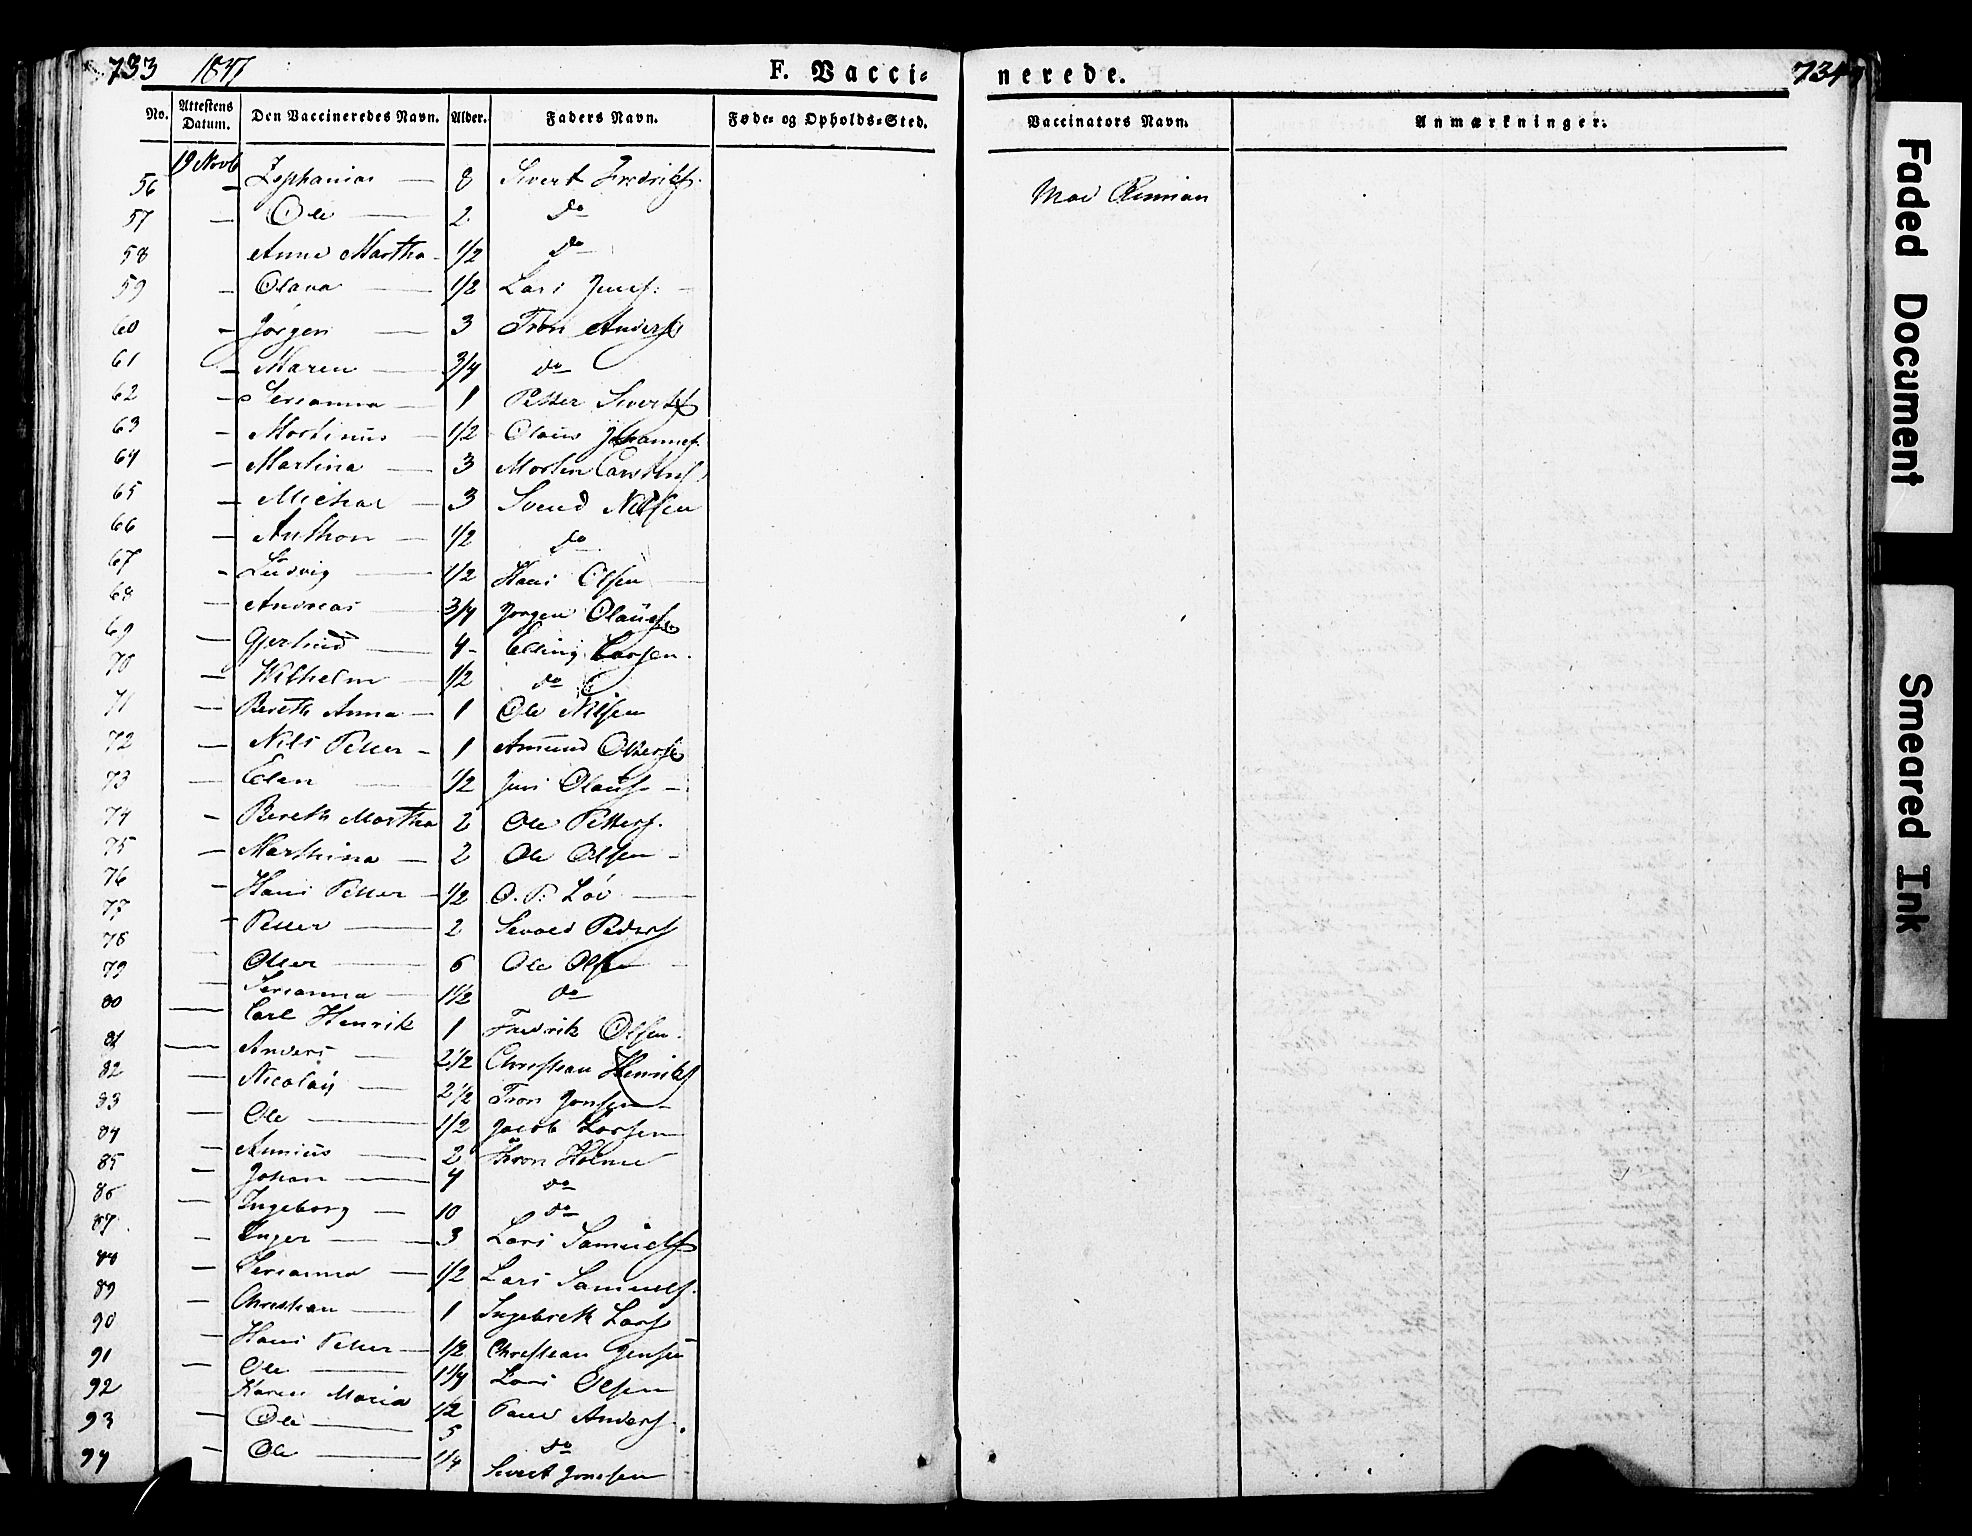 733 1847 F. Vacci-
nerede. 734
No. Attestens Datum. Den Vaccineredes Navn. Alder. Faders Navn. Føde- og Opholds-Sted. Vaccinators Navn. Anmærkninger.
19 Novb
56 - Zephanias - 8 Sivert Fredriks.
57 - Ole - 2 do
58 Anne Martha - 1/2 do
59 - Olava - 1/2 Lars Jensf: -
60 - Jørgen - 3 Tron Anders
61 - Maren - 3/4 do
62 - Serianna - 1 Petter Siverts
63 - Mortinus - 1/2 Olaus Johannes.
64 - Martina - 3 Morten Carstens
65 - Michael - 3 Svend Nilsen
66 - Anthon - 1/2 do
67 - Ludvig - 1/2 Hans Olsen -
68 - Andreas - 3/4 Jørgen Olaus
69 - Gjertrud - 4 - Elling Larsen.
70 - Wilhelm - 1/2 do
71 - Bereth Anna - 1 Ole Nilsen
72 - Nils Petter - 1 Amund Otters
73 - Elen - 1/2 Jens Olaus -
74 - Bereth Martha 2 Ole Petters.
75 - Marthina - 2 Ole Olsen -
76 - Hans Petter - 1/2 O. P. Løv -
77 - Petter - 2 Sivald Peders
78 - Otter - 6 Ole Olsen -
79 - Serianna - 1 1/2 do
80 - Carl Henrik 1 Fredrik Olsen.
81 - Anders - 2 1/2 Christian Henriks
82 - Nicolaij - 2 1/2 Tron Jonsen -
83 - Ole - 1/2 Jacob Larsen
84 - Annius - 2 Tron Holme
85 - Johan - 4 do
86 - Ingeborg - 10 do
87 - Inger - 3 Lars Samuels
88 - Serianna - 1/2 Lars Samuels.
89 - Christian - 1 Ingebrett Lars
90 - Hans Petter - 1/2 Christian Jensen
91 - Ole - 1 1/4 Lars Olsen
92 - Karen Maria 1/2 Paul Anders.
93 - Ole - 5 do
94 - Ole - 1/4 Sivert Jonssen
Mad
Faded Document
Smeared Ink